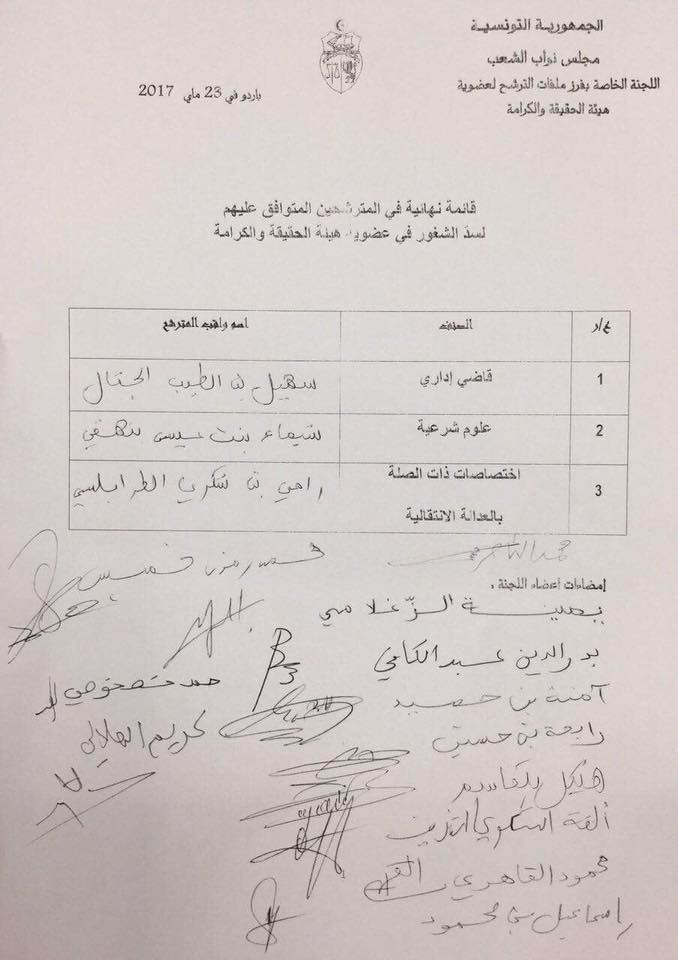 الجمهورية التونسية
مجلس نواب الشعب
اللجنة الخاصة بفرز ملفات الترشح لعضوية
هيئة الحقيقة والكرامة
باردو في 23 ماي 2017
قائمة نهائية في المترشحين المتوافق عليهم
لسدّ الشغور في عضوية هيئة الحقيقة والكرامة
ع/ر الصنف اسم ولقب المترشح
1 قاضي إداري سهيل بن الطيب الجتال
2 علوم شرعية شيماء بنت عيسى
3 اختصاصات ذات الصلة بالعدالة الانتقالية رامي بن شكري الطرابلسي
محمد
محمد رمزي خميس
إمضاءات أعضاء اللجنة :
الزّغلامي
بدر الدين عبد الكافي
آمنة بن حميد
كريم الهلالي
رابعة بن حسين
هيكل بلقاسم
ألفة السكري الشريف
محمود القاهري
إسماعيل بن محمود